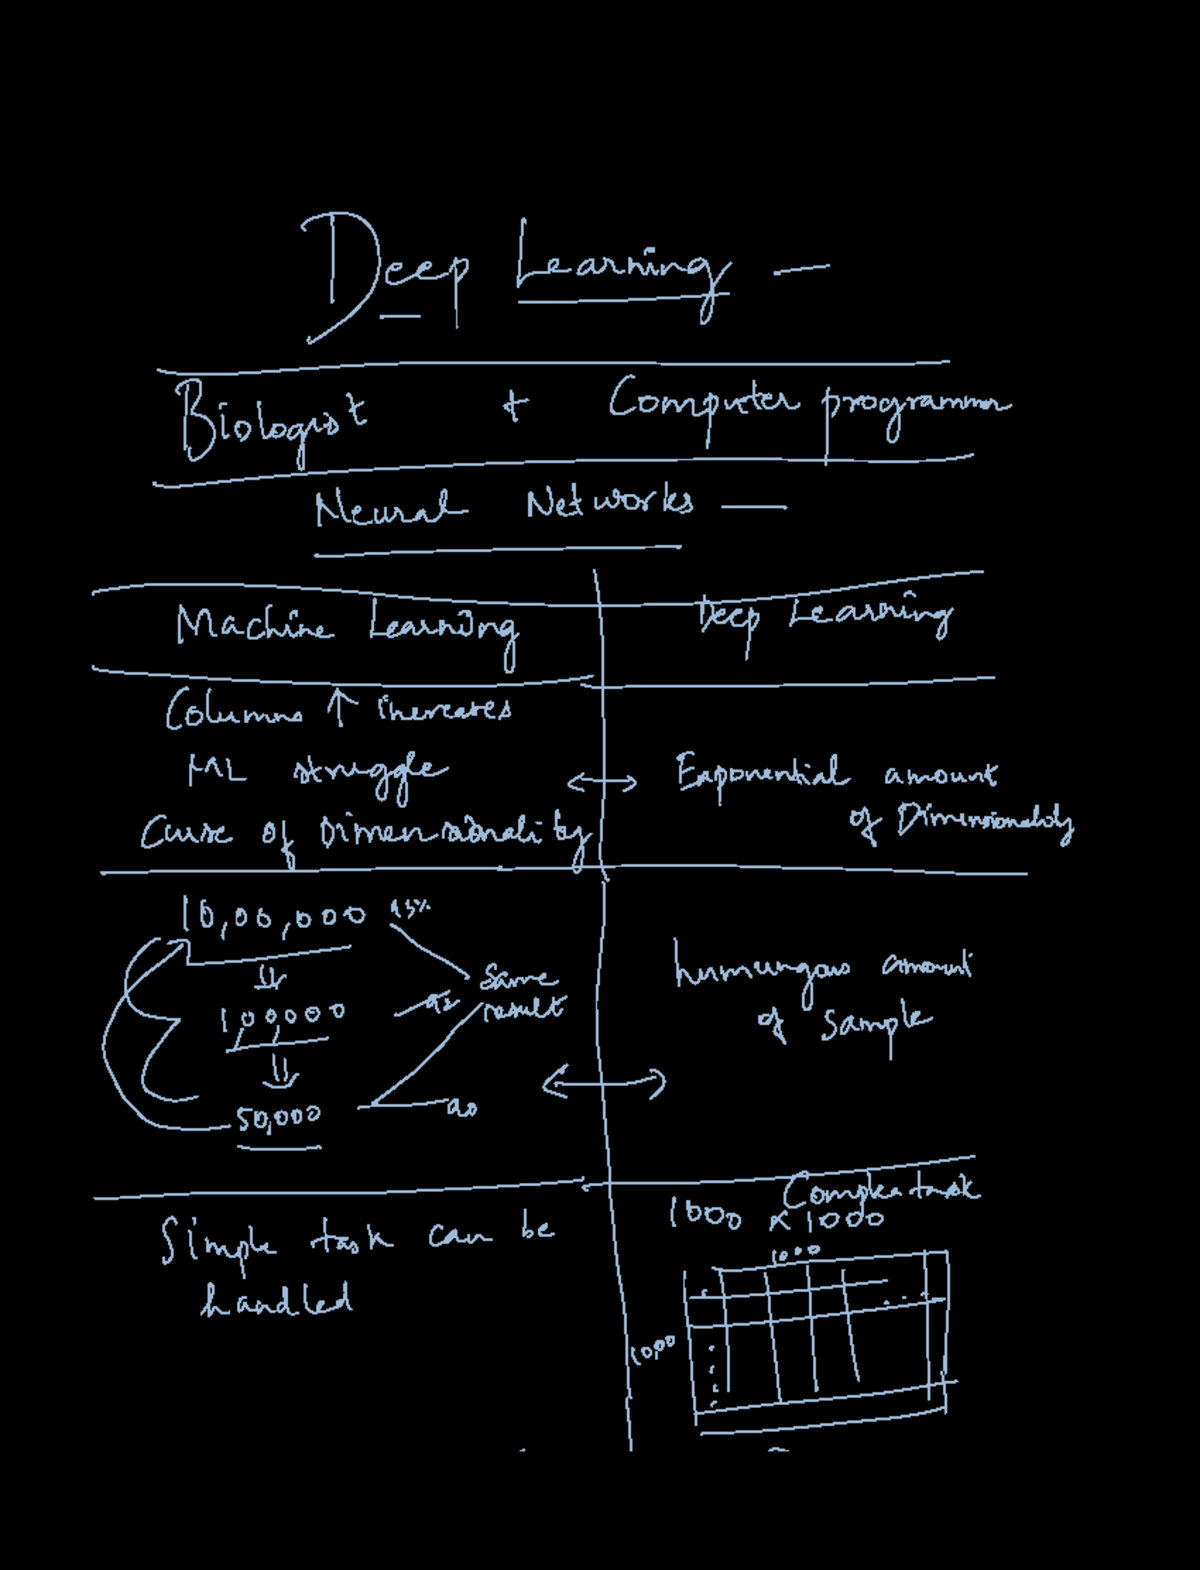 Deep Learning —
Biologist + Computer programmer
Neural Networks —
Machine Learning
Deep Learning
Columns ↑ increases
ML struggle
Curse of Dimensionality
↔
Exponential amount
of Dimensionality
10,00,000 93%
⇓
1,00,000 92
⇓
50,000 90
same
result
↔
humungous amount
of sample
Simple task can be
handled
Complex task
1000 × 1000
1000